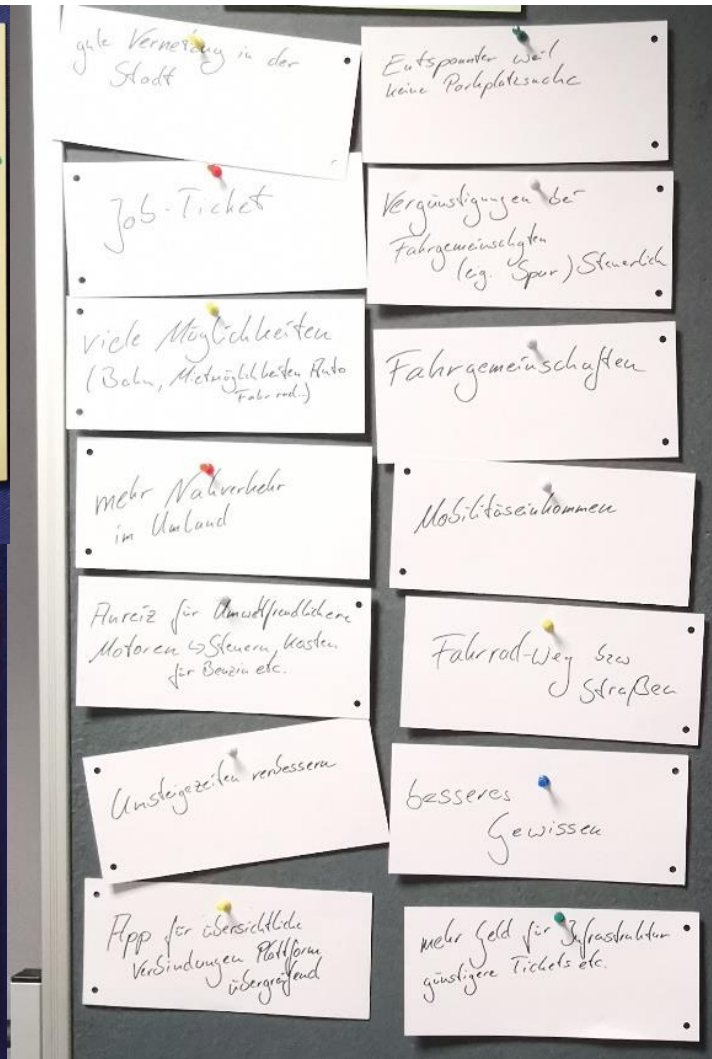 gute Vernetzung in der
Stadt
Job-Ticket
viele Möglichkeiten
(Bahn, Mietmöglichkeiten Auto
Fahrrad..)
mehr Nahverkehr
im Umland
Anreiz für Umweltfreundlichere
Motoren ↪ Steuern, Kosten
für Benzin etc.
Umsteigezeiten verbessern
App für übersichtliche
Verbindungen Plattform
übergreifend
Entspannter weil
keine Parkplatzsuche
Vergünstigungen bei
Fahrgemeinschaften
(eig. Spur) Steuerlich
Fahrgemeinschaften
Mobilitäseinkommen
Fahrrad-Weg bzw
Straßen
besseres
Gewissen
mehr Geld für Infrastruktur
günstigere Tickets etc.